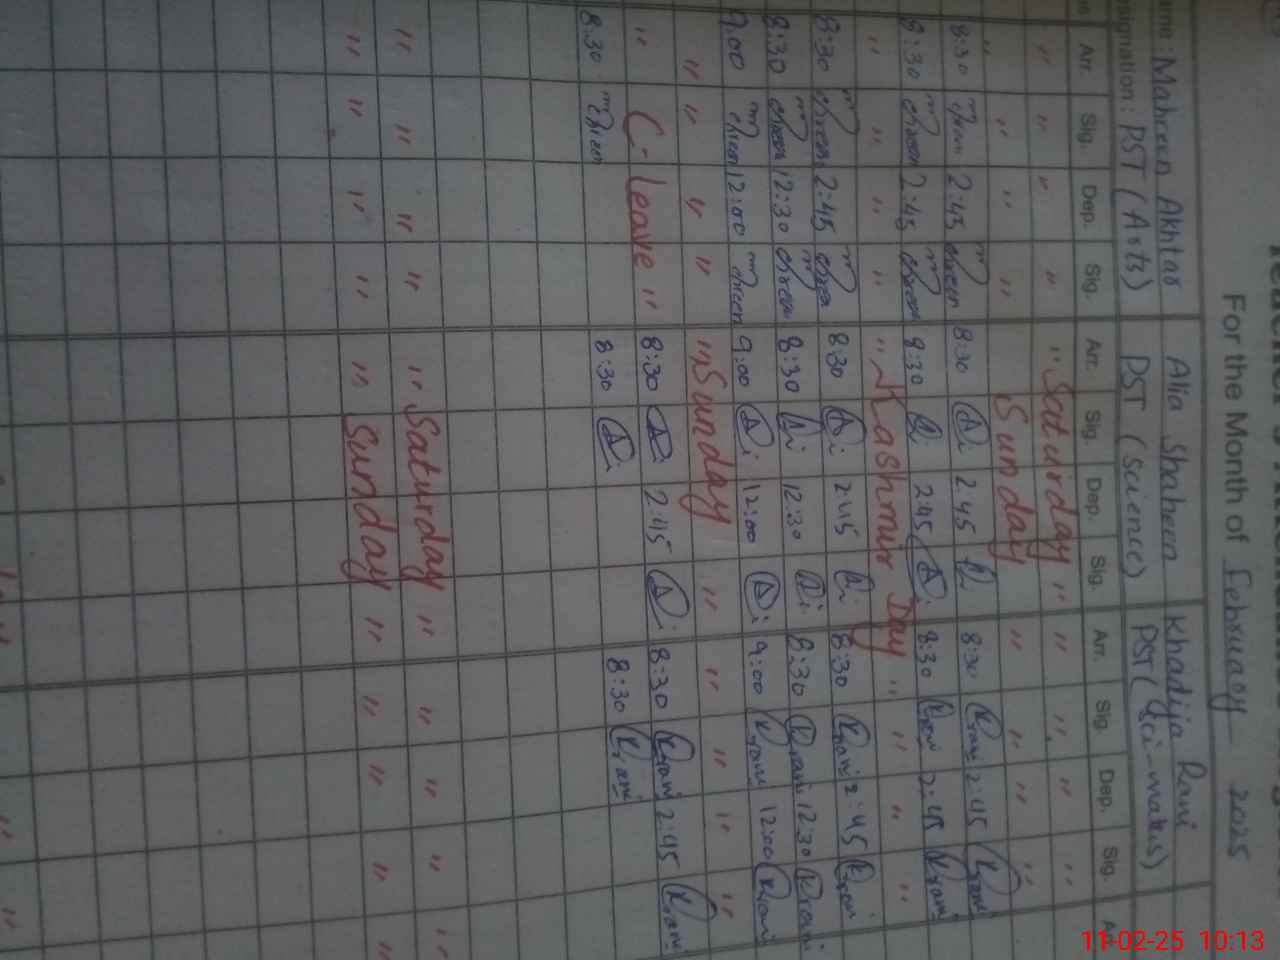 For the Month of February 2025
ame: Mahreen Akhtar Alia Shaheen Khadija Rani
signation: PST (Arts) PST (science) PST (Sci-maths)
Arr. Sig. Dep. Sig. Arr. Sig. Dep. Sig. Arr. Sig. Dep. Sig.
" " " " " Saturday " " " " "
" " " " Sunday " " " "
8:30 2:45 8:30 2:45 8:30 Krani 2:45 Krani
8:30 2:45 8:30 2:45 8:30 Krani 2:45 Krani
" " " " " Kashmir Day " " " "
8:30 2:45 8:30 2:45 8:30 Krani 2:45 Krani
8:30 12:30 8:30 12:30 8:30 Krani 12:30 Krani
9:00 12:00 9:00 12:00 9:00 Krani 12:00 Krani
" " " " " Sunday " " " " "
" C-leave " 8:30 2:45 8:30 Krani 2:45 Krani
8:30 8:30 8:30 Krani
" " " " " Saturday " " " " "
" " " " " Sunday " " " "
11-02-25 10:13